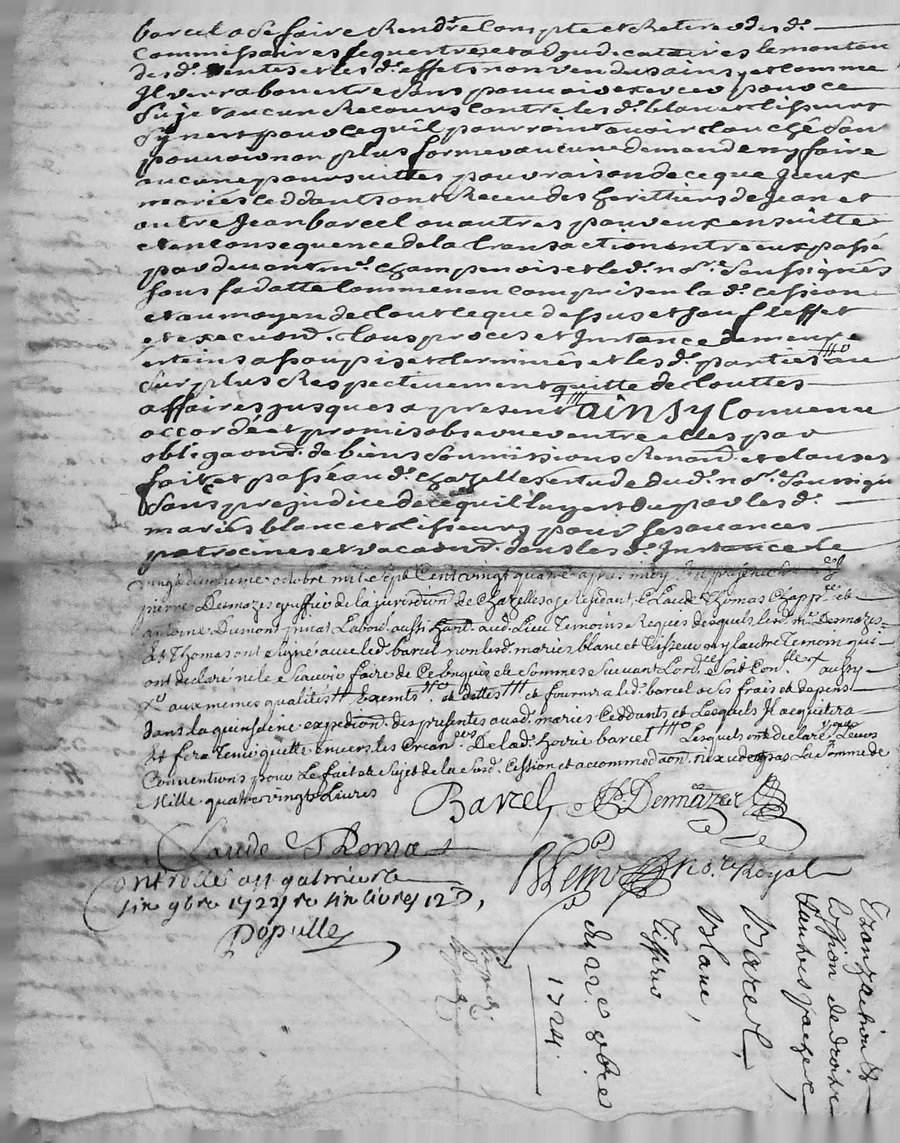 barcel a se faire Rendre Compte et Retirer desd.
Commissaires sequestres et adjudicataires le montan
des d. ventes et les d. effets non vendus ainsy et comme
Il verra bon estre sans pouvoir exercer pour ce
sujet aucun Recours Contre les d. blanc et tisseurs
Sy nest pour ce quil pourroint avoir touché San
pouvoir non plus former aucune demande ny faire
aucune poursuittes pour raison de ce que Jceux
mariés Ceddants ont Receu des herittiers de Jean et
autre Jean barcel ou autres pour eux en suitte
et en Consequence de la transaction entre eux passé
par devant m.e Champenois et led. no.re soussignés
sous sa datte Comme non compris en lad. Cession
et au moyen de tout ce que dessus et sauf leffet
et execuon. tous proces et Instance demeure
eteins assoupis et terminés et les d. parties au
surplus Respectivement quitte de touttes
affaires jusques a present ainsy Convenu
accordé et promis observer entre elles par
obligaons. de biens soumissions Renond. et clauses
fait et passé aud. Chazelles etude dud. no.re soussigné
Sans prejudice de ce quil luy est du par les d.
mariés blanc et tisseurs pour ses avances
patrocines et vacaons. dans les d. Instance Le
vingt deuxieme octobre mil Sept Cent vingt quatre apres midy En presence de
pierre Desmazes greffier de la jurisdiction de Chazelles y Residant, Claude Thomas et
antoine Dumont Labor. aussi habit. aud. Lieu Temoins Requis desquels led. m.e Desmazes
Et Thomas ont signé avec led. barcel non lesd. mariés blanc et tisseurs ny lautre Temoin qui
ont declaré ne le scavoir faire de Ce Enquis et Sommes Suivant Lord.ce
aux memes qualités exemts et dettes et fournira led. barcel a ses frais et depens
dans la quinzaine expediond. des presentes ausd. mariés Ceddants et Lesquels Il acquitera
Et fera Tenir quitte envers les Crean.ers De lad. hoirie barcel Lesquels ont declaré Leurs
Conventions pour Le fait et Sujet de la susd. Cession et accommodaon. nexceder pas La Somme de
Mille quatre vingt Livres
Barcel Demazes
Claude Thoma
no.re Royal
Controllé a St galmier le
sin 9bre 1724 Re sin livres 12 s,
Populle
Tranzaction &
Cession de droits
Barcel,
Blanc,
Tisseur
du 22e 8bre
1724